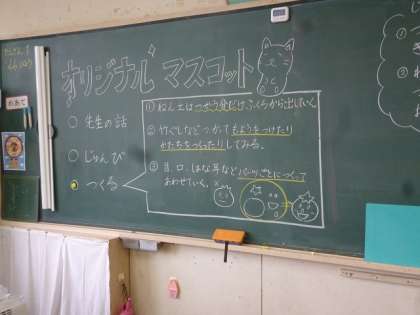 オリジナル マスコット
めあて
○ 先生の話
○ じゅんび
○ つくる
① ねん土はつかう分だけふくろから出していく。
② 竹ぐしなどつかってもようをつけたり
かたちをつくったりしてみる。
③ 目、口、はな、耳などパーツごとにつくって
あわせていく。